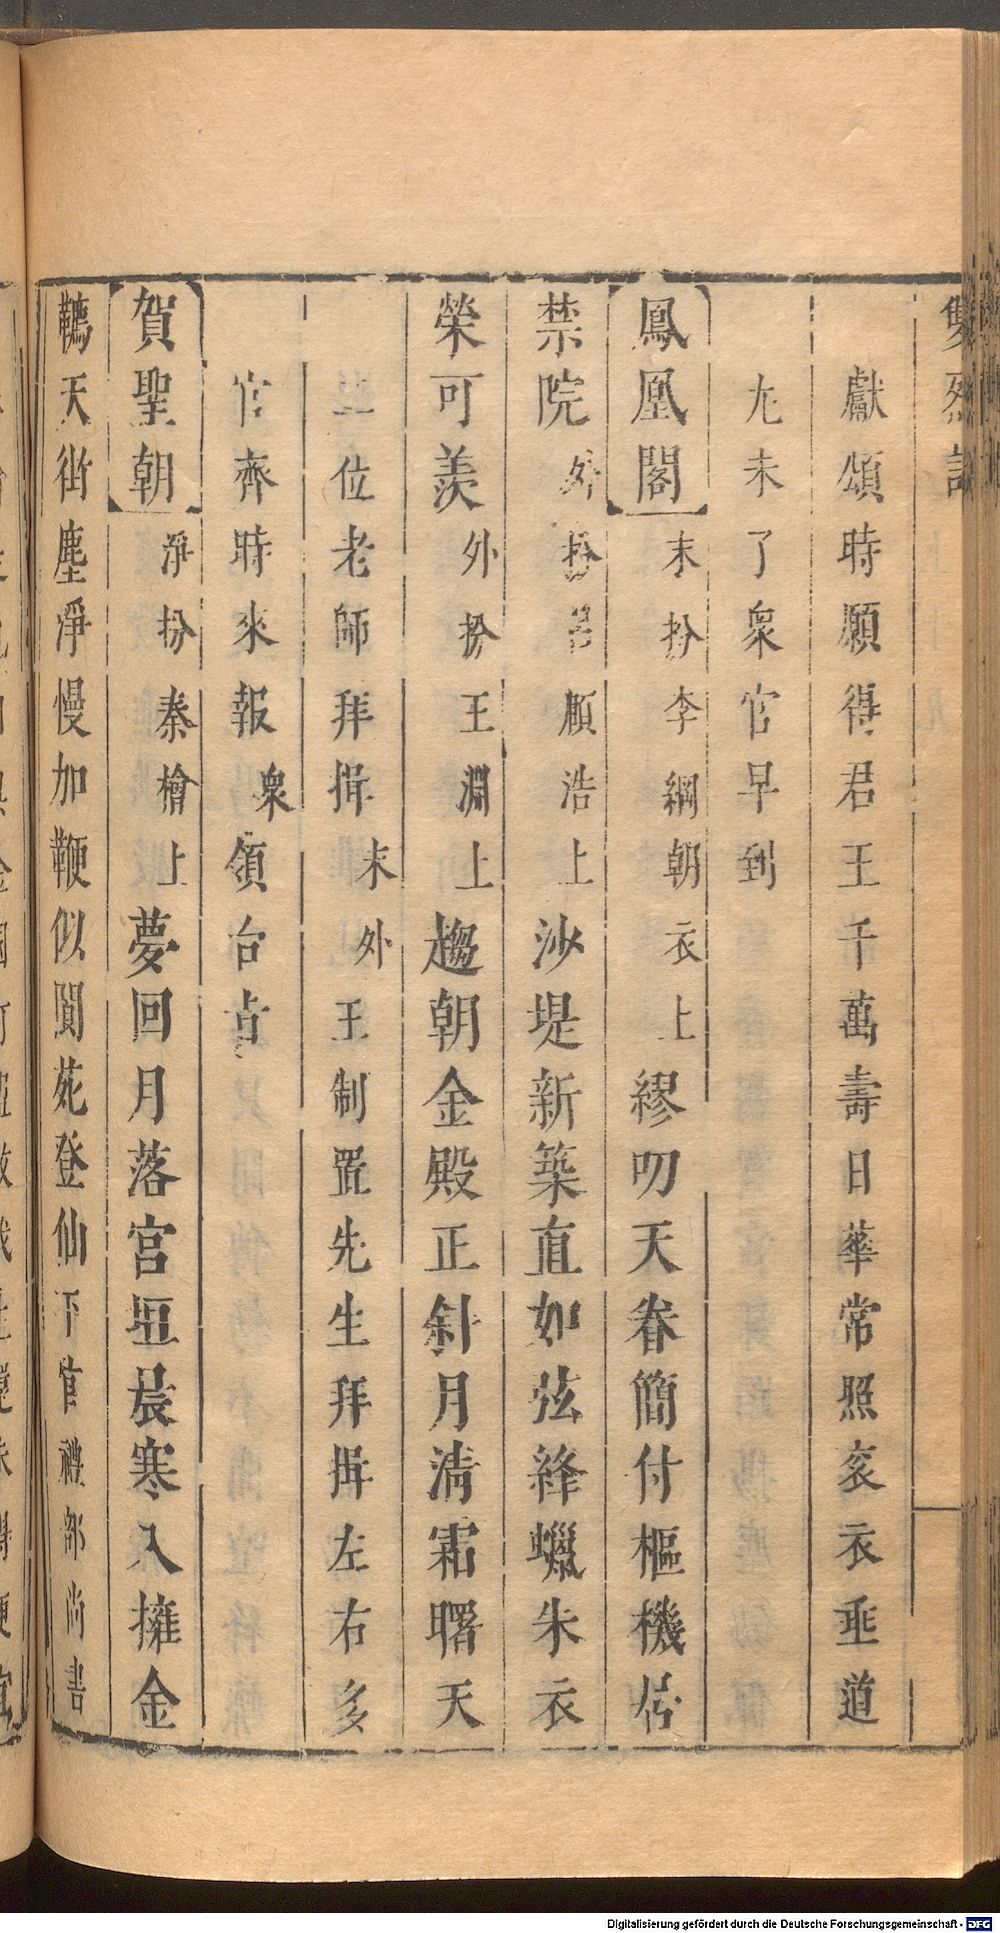 雙烈記
獻頌時願得君王千萬壽日華常照袞衣垂道
尤未了衆官早到
鳳凰閣末扮李綱朝衣上繆叨天眷簡付樞機居
禁院外扮呂頤浩上沙堤新築直如弦絳蠟朱衣
榮可羨外扮王淵上趨朝金殿正斜月清霜曙天
二位老師拜揖末外王制置先生拜揖左右多
官齊時來報衆領台旨
賀聖朝淨扮秦檜上夢回月落宮垣晨寒入擁金
韉天街塵淨慢加鞭似閬苑登仙下官禮部尚書
Digitalisierung gefördert durch die Deutsche Forschungsgemeinschaft - DFG